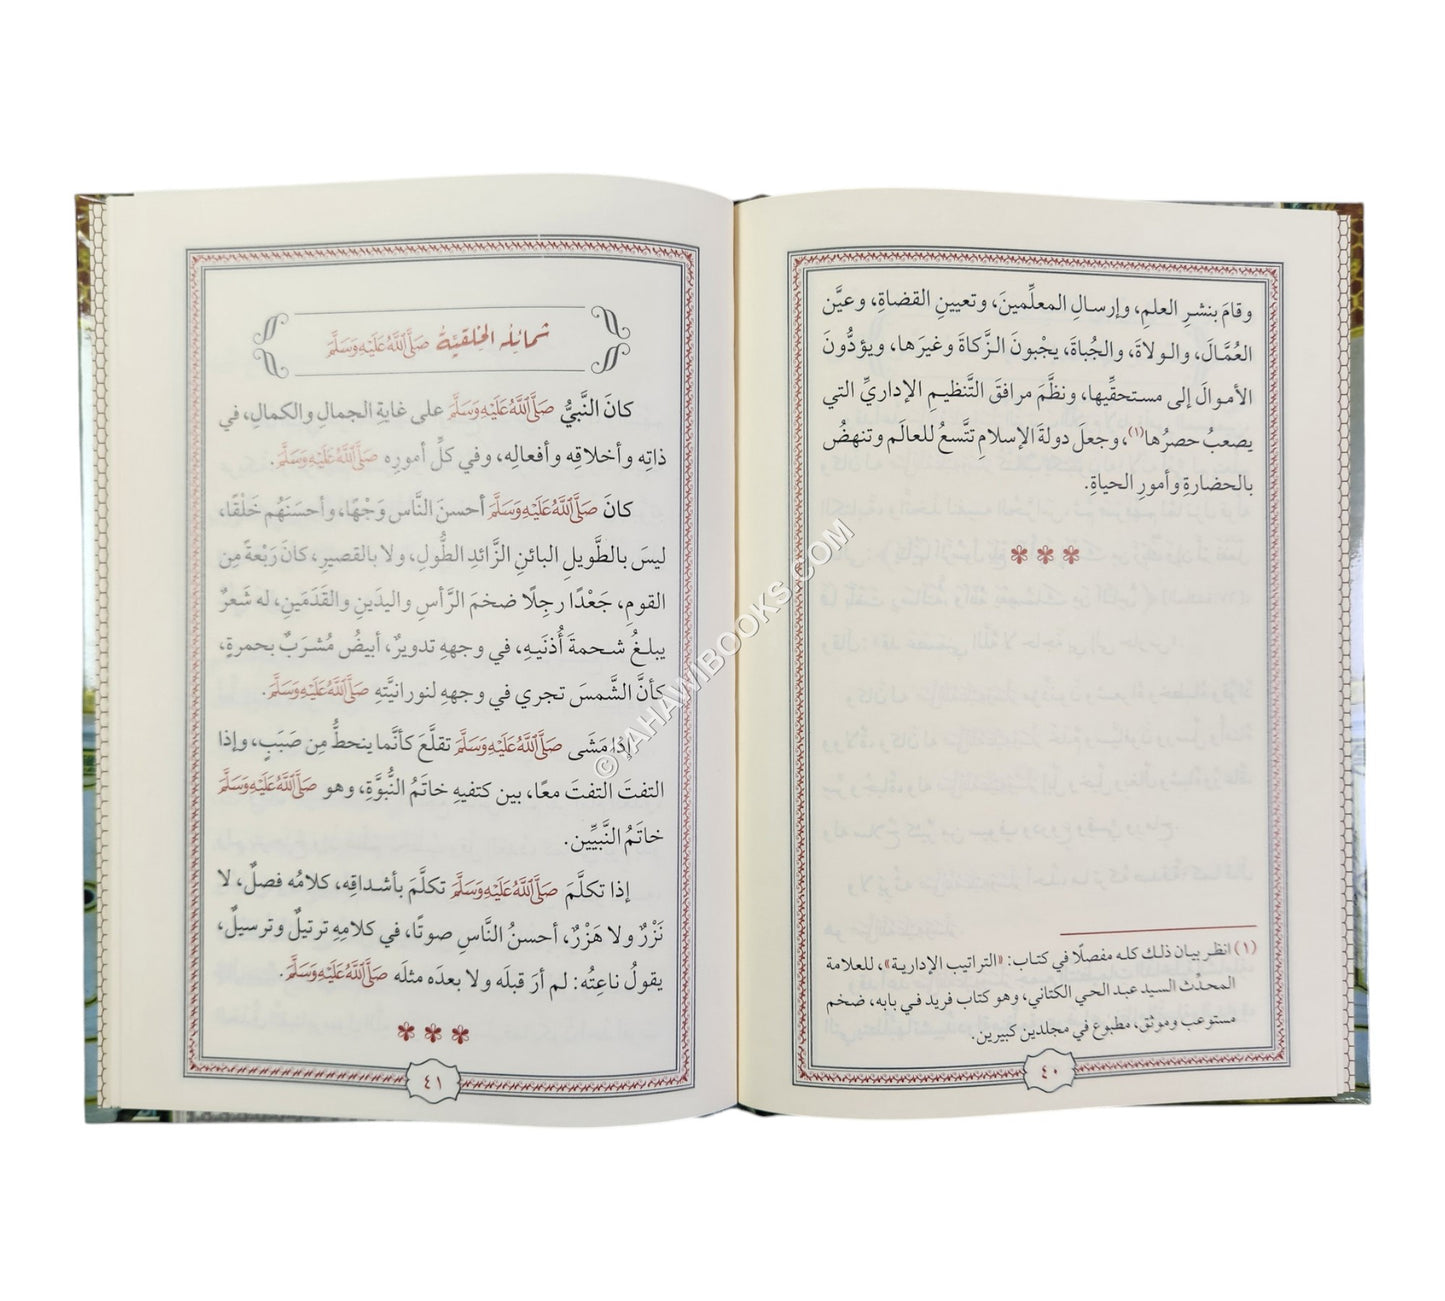 وقامَ بنشرِ العلمِ، وإرسالِ المعلِّمينَ، وتعيينِ القضاةِ، وعيَّن
العُمَّالَ، والولاةَ، والجُباةَ، يجْبونَ الزَّكاةَ وغيرَها، ويؤدُّونَ
الأموالَ إلى مستحقِّيها، ونظَّمَ مرافقَ التَّنظيمِ الإداريِّ التي
يصعبُ حصرُها(١)، وجعلَ دولةَ الإسلامِ تتَّسعُ للعالَم وتنهضُ
بالحضارةِ وأمورِ الحياةِ.
(١) انظر بيان ذلك كله مفصلًا في كتاب: «التراتيب الإدارية»، للعلامة
المحدِّث السيد عبد الحي الكتاني، وهو كتاب فريد في بابه، ضخم
مستوعب وموثق، مطبوع في مجلدين كبيرين.
٤٠
شمائله الخِلقيّة صَلَّى اللَّهُ عَلَيْهِ وَسَلَّمَ
كانَ النَّبيُّ صَلَّى اللَّهُ عَلَيْهِ وَسَلَّمَ على غايةِ الجمالِ والكمالِ، في
ذاتِه وأخلاقِه وأفعالِه، وفي كلِّ أمورِه صَلَّى اللَّهُ عَلَيْهِ وَسَلَّمَ.
كانَ صَلَّى اللَّهُ عَلَيْهِ وَسَلَّمَ أحسنَ النَّاس وَجْهًا، وأحسَنَهُم خَلْقًا،
ليسَ بالطَّويلِ البائنِ الزَّائدِ الطُّولِ، ولا بالقصيرِ، كانَ رَبْعةً مِن
القومِ، جَعْدًا رجِلًا ضخمَ الرَّأسِ واليدَينِ والقدَمَينِ، له شَعرٌ
يبلغُ شحمةَ أُذنَيهِ، في وجههِ تدويرٌ، أبيضُ مُشرَبٌ بحمرةٍ،
كأنَّ الشَّمسَ تجري في وجههِ لنورانيَّتهِ صَلَّى اللَّهُ عَلَيْهِ وَسَلَّمَ.
إذا مَشَى صَلَّى اللَّهُ عَلَيْهِ وَسَلَّمَ تقلَّعَ كأنَّما ينحطُّ مِن صَبَبٍ، وإذا
التفتَ التفتَ معًا، بين كتفيهِ خاتَمُ النُّبوَّةِ، وهو صَلَّى اللَّهُ عَلَيْهِ وَسَلَّمَ
خاتَمُ النَّبيِّين.
إذا تكلَّمَ صَلَّى اللَّهُ عَلَيْهِ وَسَلَّمَ تكلَّمَ بأشداقِه، كلامُه فصلٌ، لا
نَزْرٌ ولا هَزْرٌ، أحسنُ النَّاسِ صوتًا، في كلامِهِ ترتيلٌ وترسيلٌ،
يقولُ ناعِتُه: لم أرَ قبلَه ولا بعدَه مثلَه صَلَّى اللَّهُ عَلَيْهِ وَسَلَّمَ.
٤١
©TAHAWIBOOKS.COM